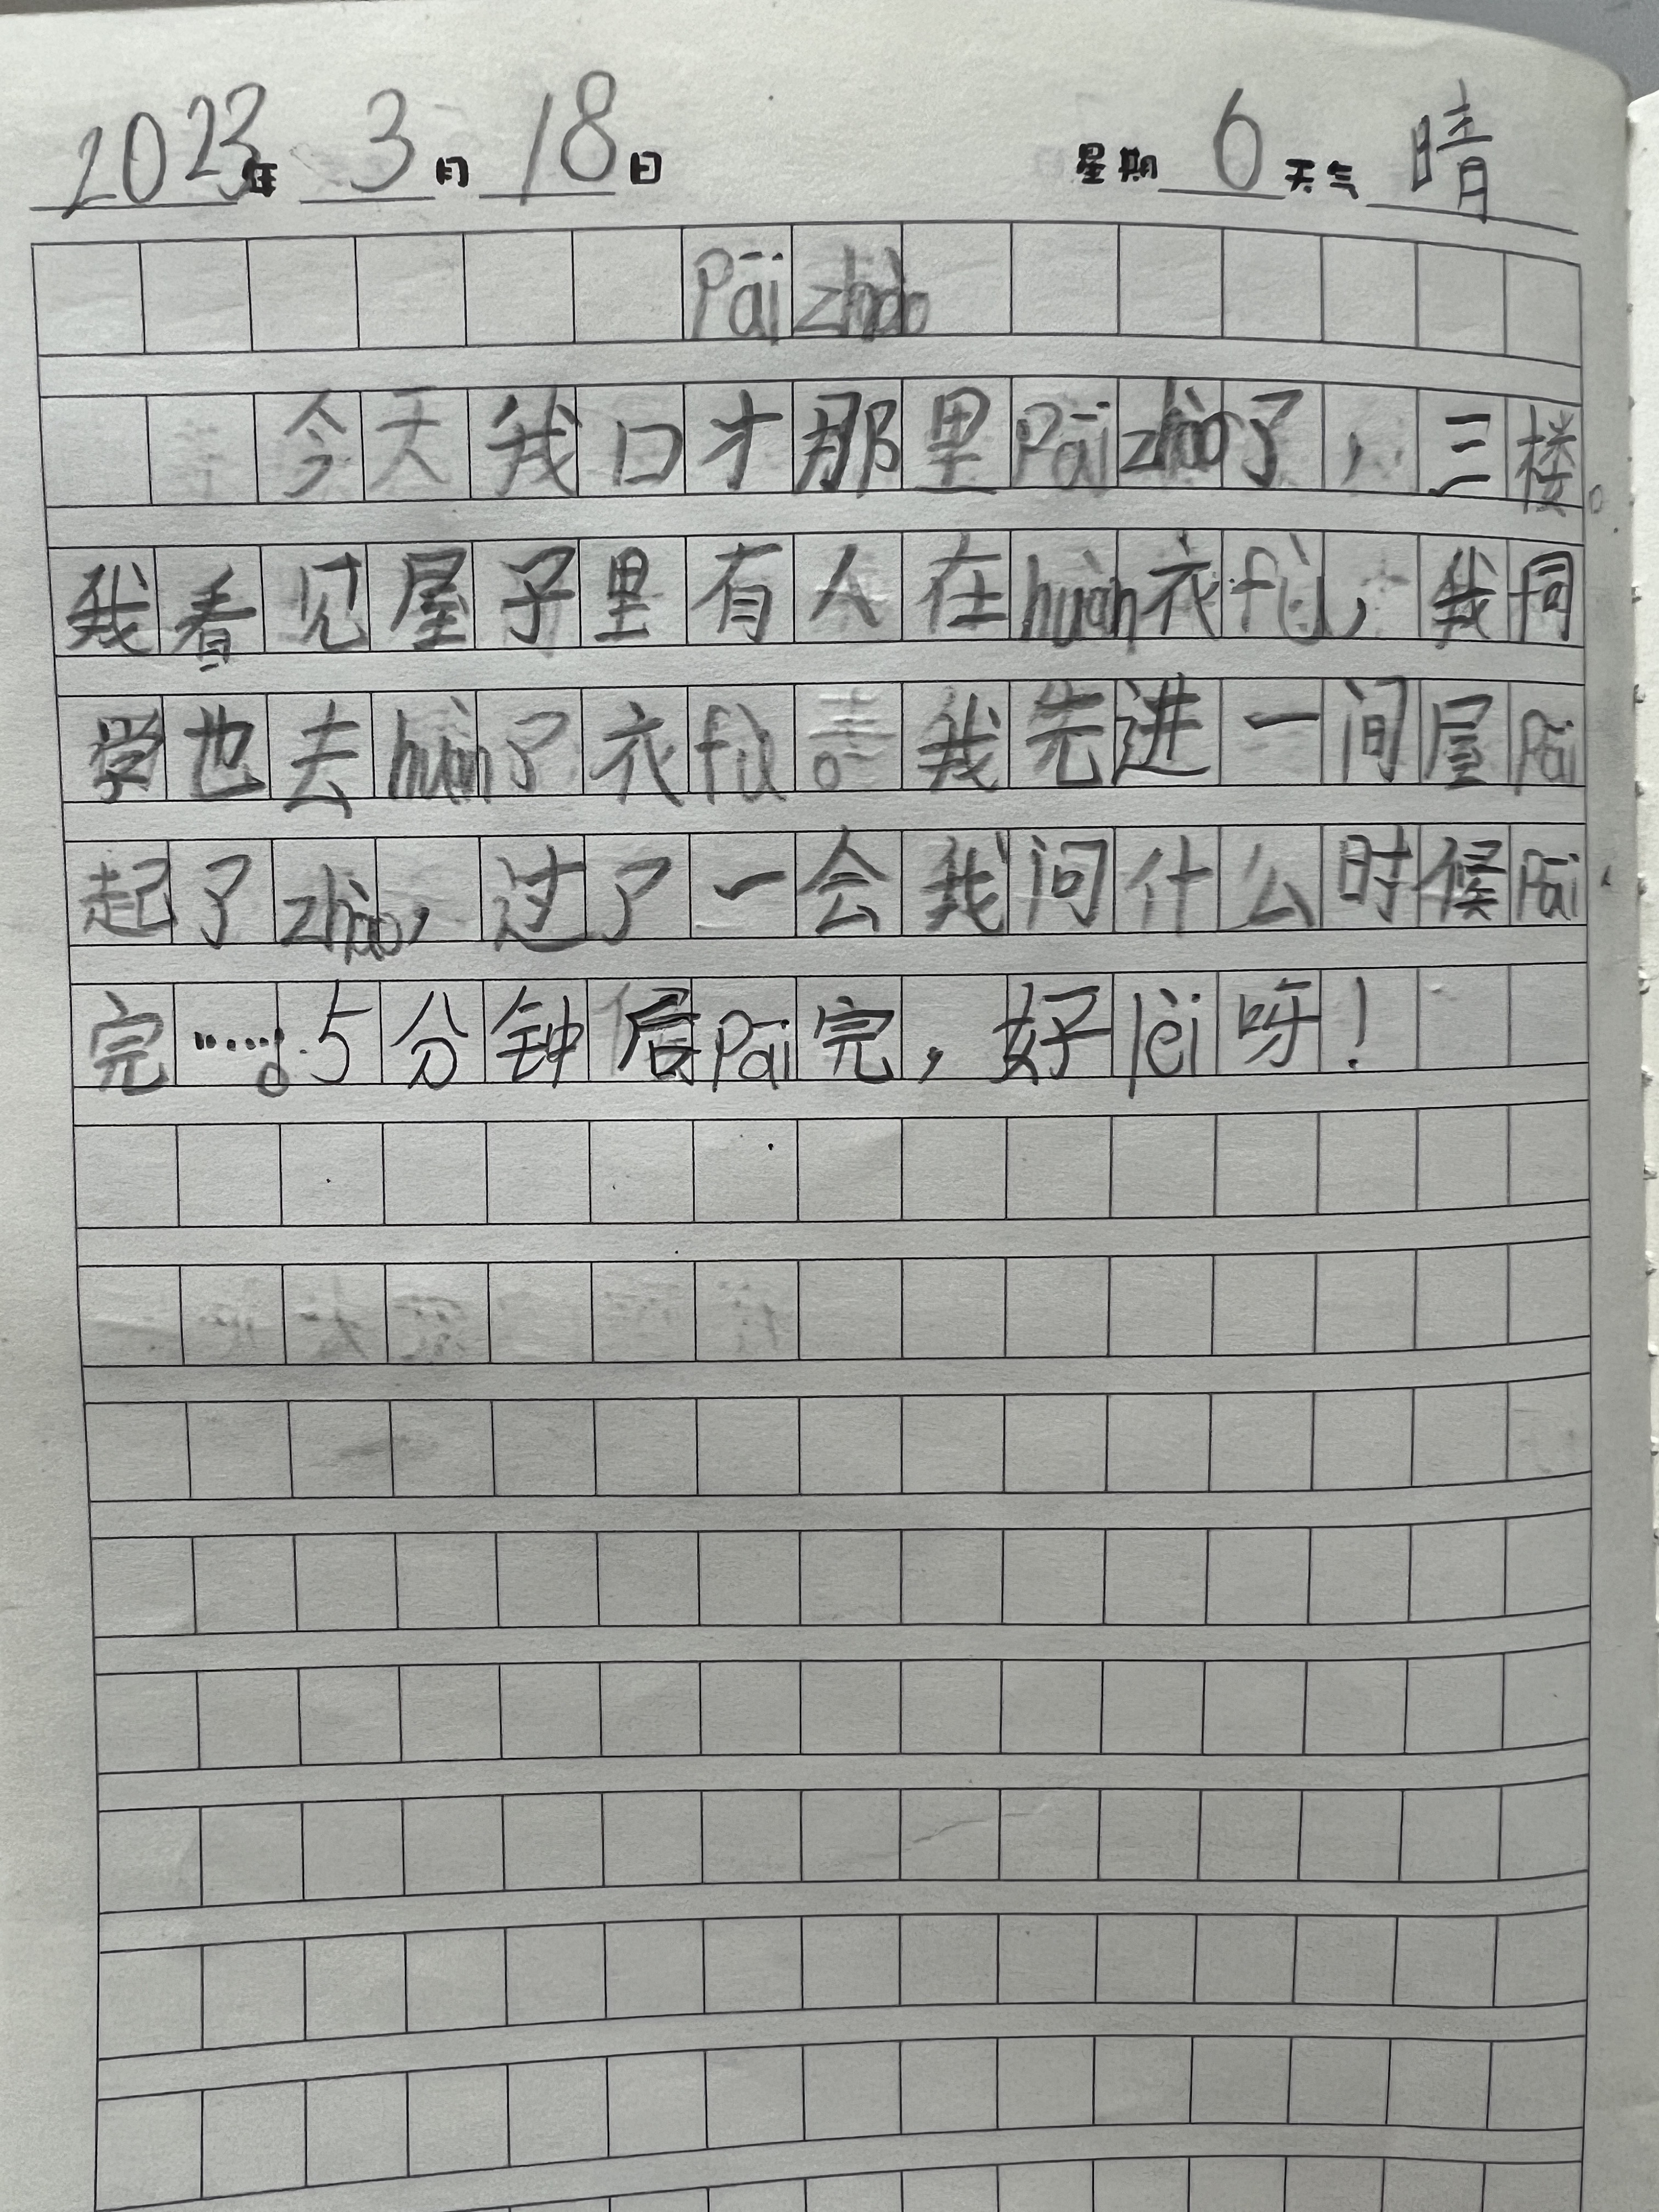 2023年 3月 18日 星期 6 天气 晴
Pāi zhào
今天我口才那里Pāi zhào了，三楼。
我看见屋子里有人在huàn衣fú，我同
学也去huàn了衣fú。我先进一间屋Pāi
起了zhào，过了一会我问什么时候Pāi
完……。5分钟后Pāi完，好lèi呀！